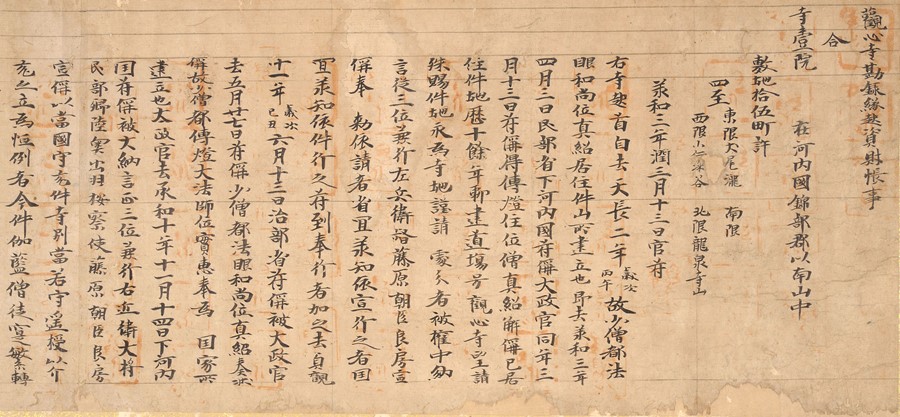 觀心寺勘錄縁起資財帳事
合
寺壹院 在河内國錦部郡以南山中
敷地拾伍町許
四至 東限大尾瀧 南限
西限小仁染谷 北限龍泉寺山
羕和三年潤三月十三日官符
右寺起首自去天長二年 歳次丙午 故少僧都法
眼和尚位真紹居住件山所建立也即去羕和三年
四月三日民部省下河内國符偁太政官同年三
月十三日符偁得傳燈住位僧真紹解偁已居
住件地歷十餘年聊建道場号觀心寺望請
殊賜件地永為寺地謹請 者被權中納
言從三位兼行左兵衛督藤原朝臣良房宣
偁奉 勅依請者省宜羕知依宣行之者国
宜羕知依件行之符到奉行者加之去貞觀
十一年 歳次己丑 六月十三日治部省符偁被太政官
去五月廿二日符偁少僧都法眼和尚位真紹奏狀
偁故少僧都傳燈大法師位實惠奉為 国家所
建立也太政官去承和十年十一月十四日下河内
国符偁被大納言正三位兼行右近衛大将
民部卿陸奥出羽按察使藤原朝臣良房
宣偁以當國守充件寺別當若守遥授以介
充之立為恒例者今件伽藍僧徒寔繁轉